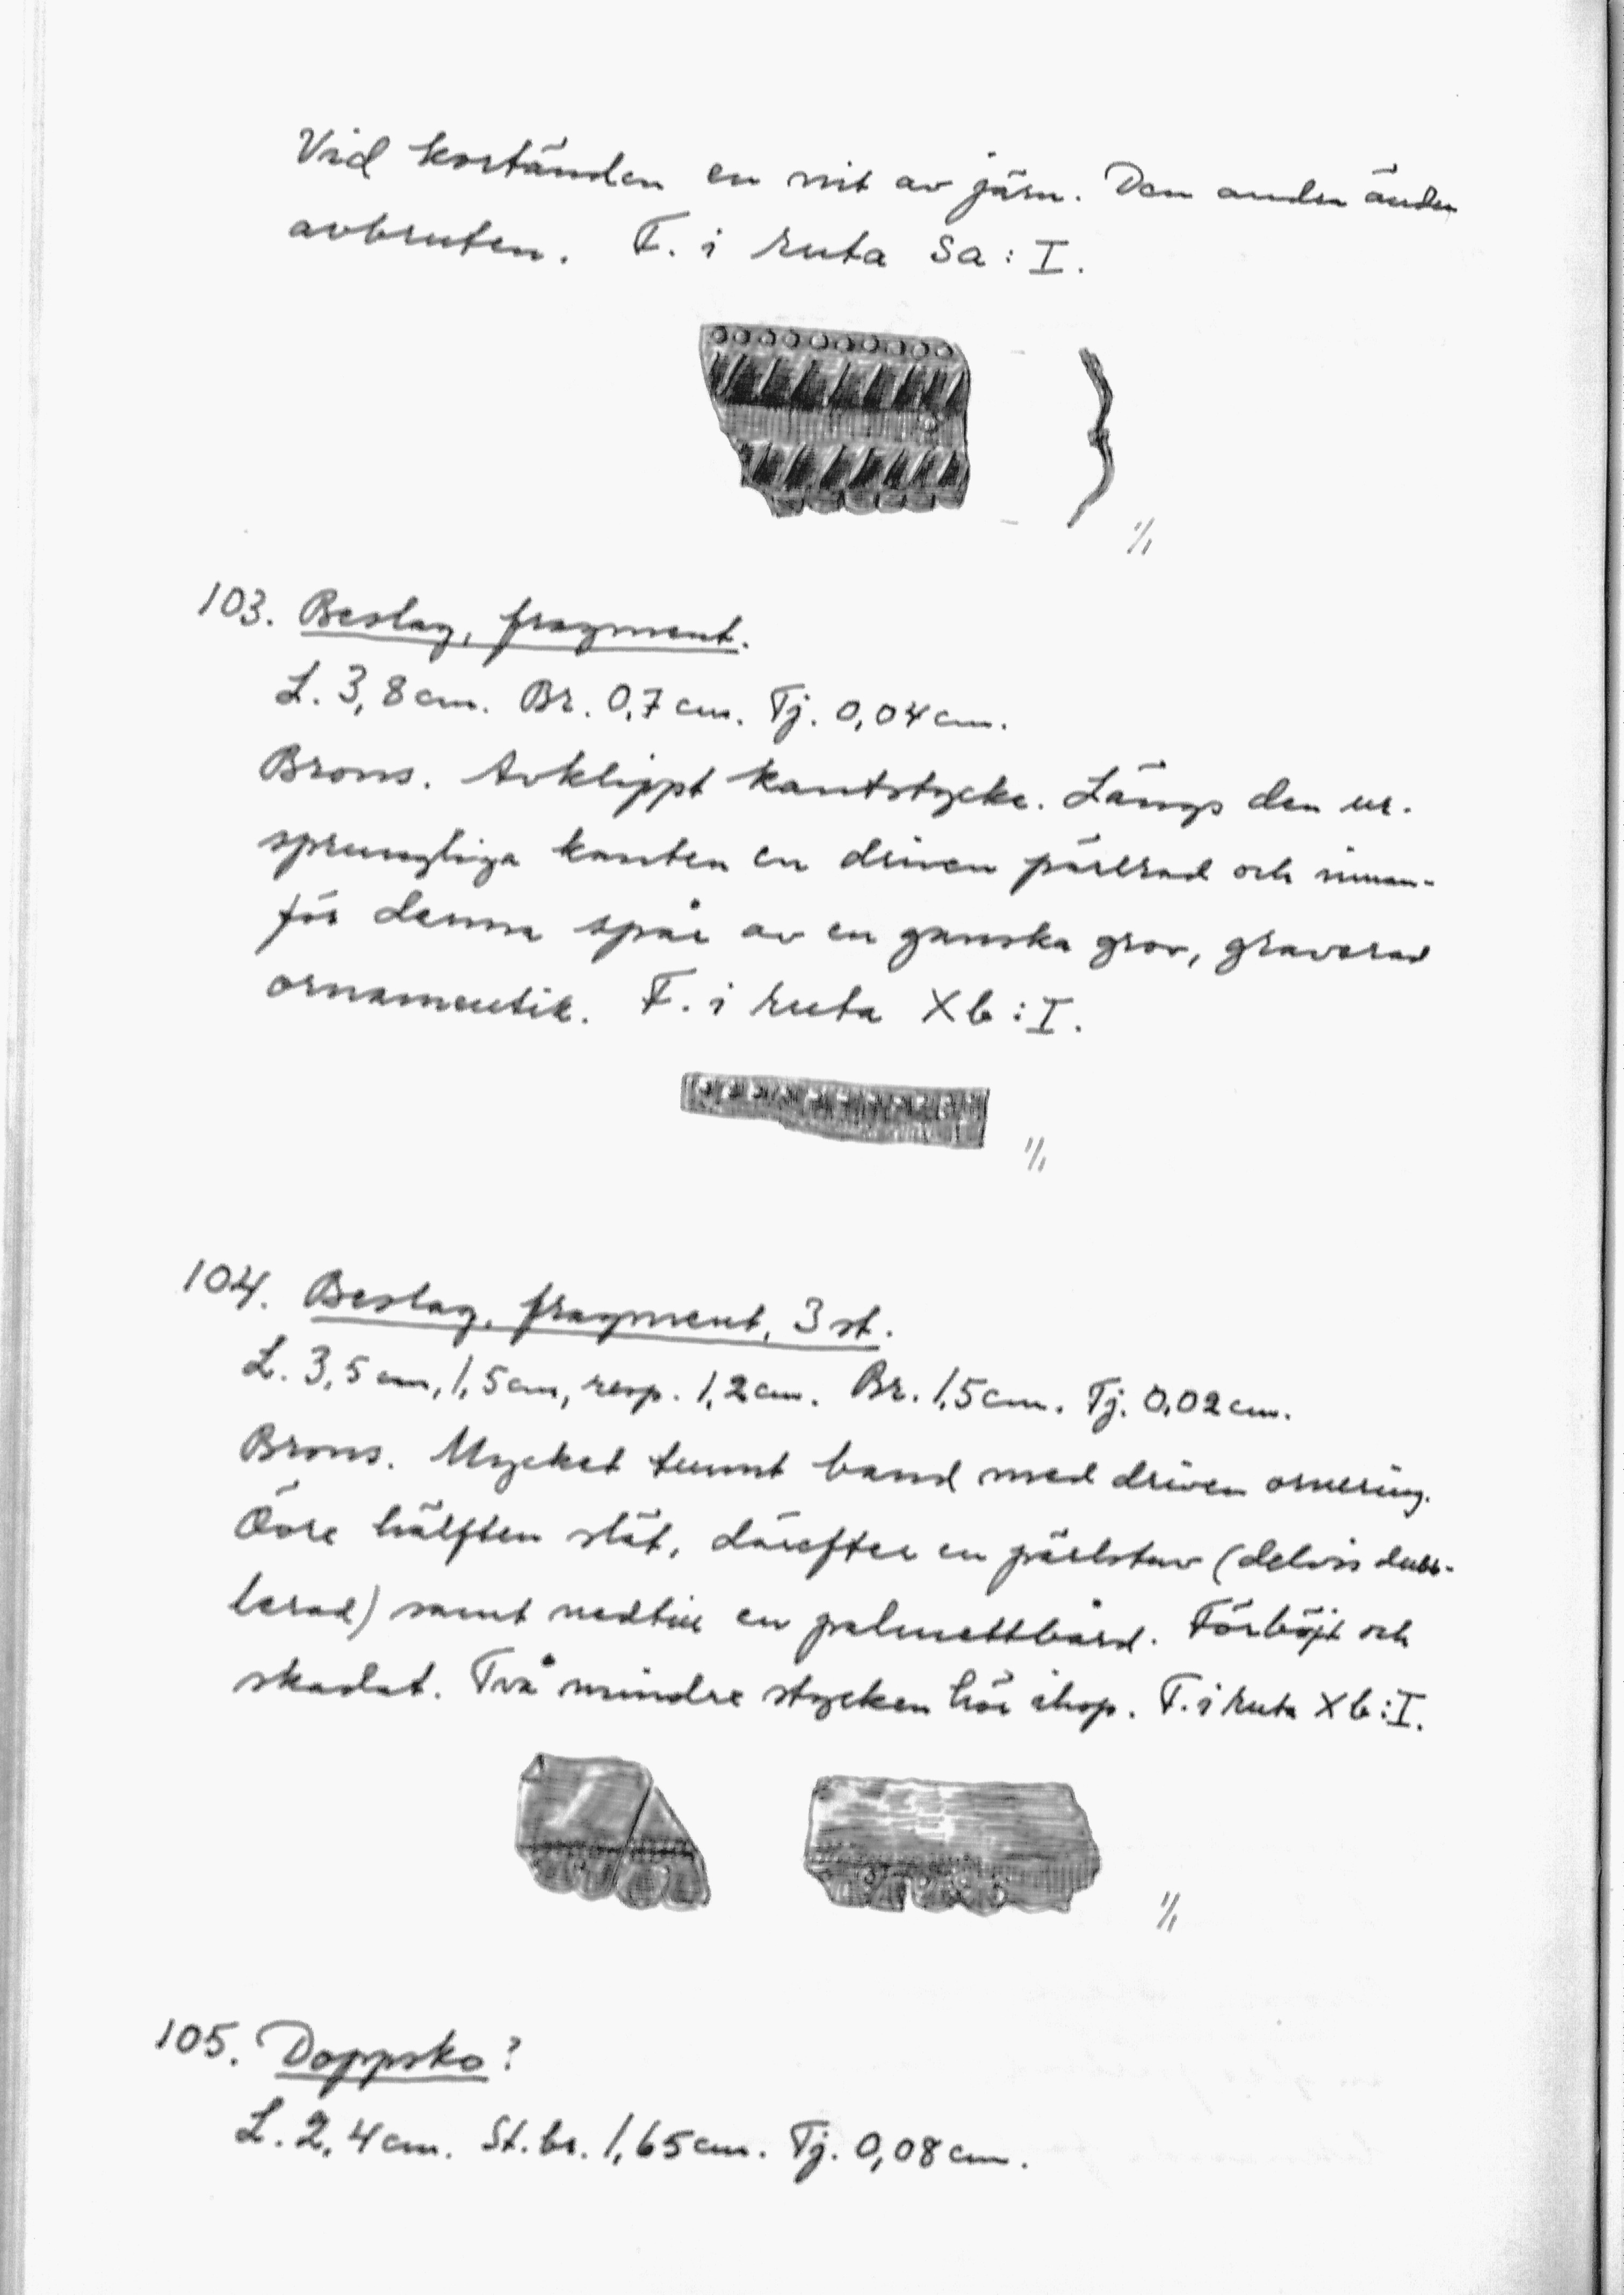 Vid kortänden en nit av järn. Den andra änden
avbruten. F. i ruta Sa: I.
1/1
103. Beslag, fragment.
L. 3,8 cm. Br. 0,7 cm. Tj. 0,04 cm.
Brons. Avklippt kantstycke. Längs den ur-
sprungliga kanten en driven pärlrad och innan-
för denna spår av en ganska grov, graverad
ornamentik. F. i ruta Xb: I.
1/1
104. Beslag, fragment, 3 st.
L. 3,5 cm, 1,5 cm, resp. 1,2 cm. Br. 1,5 cm. Tj. 0,02 cm.
Brons. Mycket tunnt band med driven ornering.
Övre hälften slät, därefter en pärlstav (delvis dubb-
lerad) samt nedtill en palmettbård. Förböjt och
skadat. Två mindre stycken hör ihop. F. i ruta Xb: I.
1/1
105. Doppsko?
L. 2,4 cm. St. br. 1,65 cm. Tj. 0,08 cm.